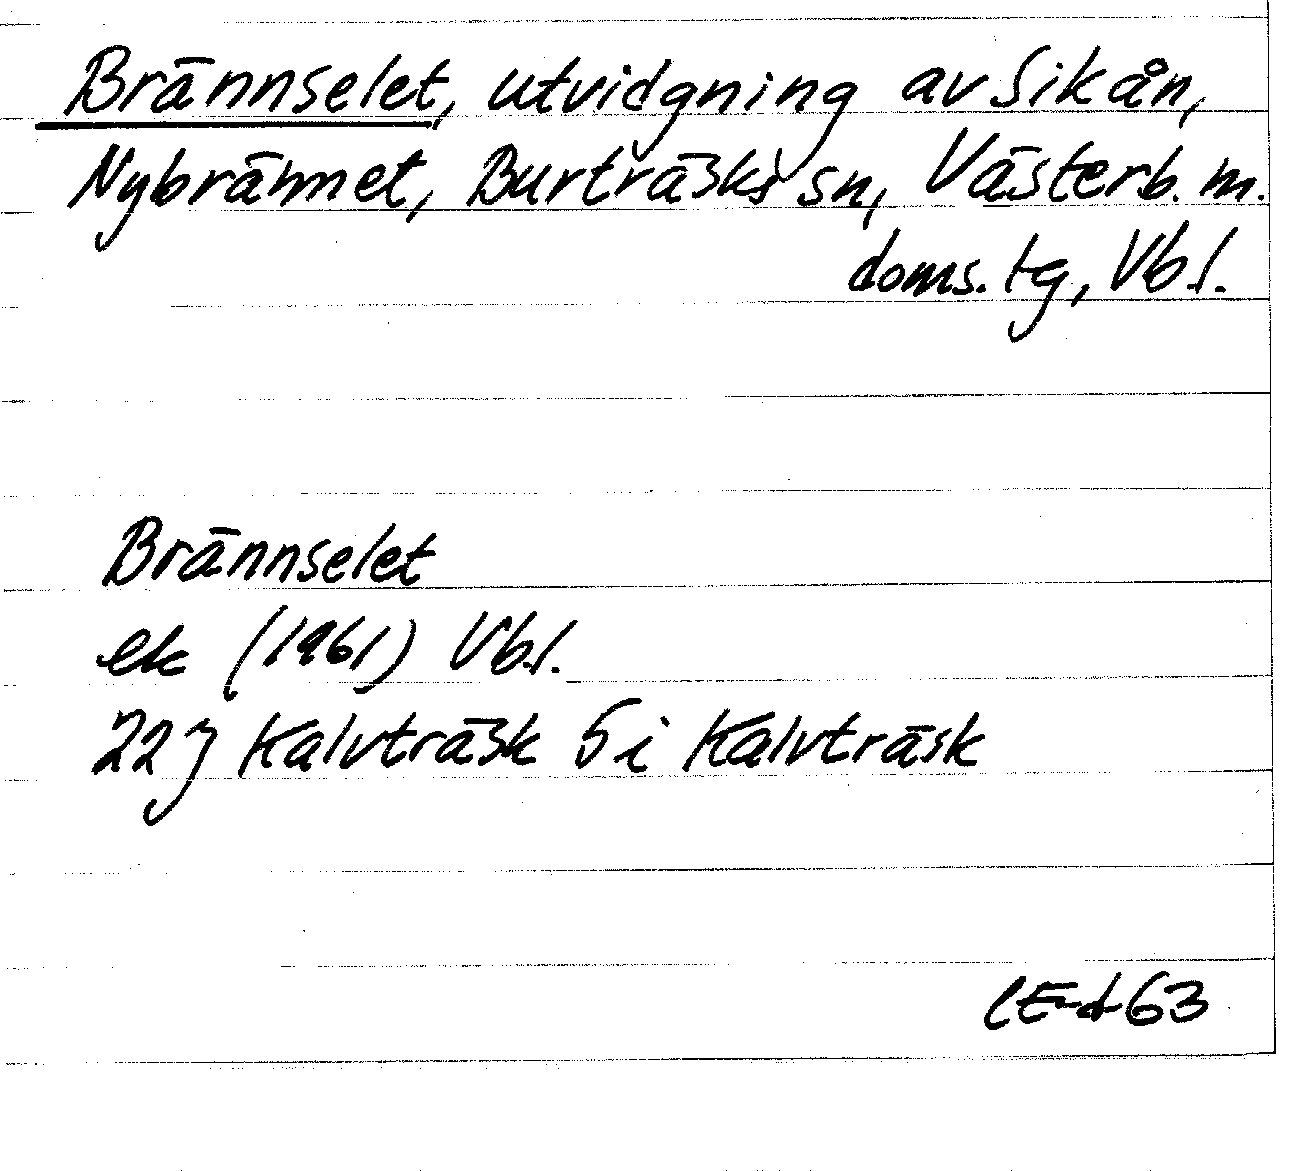 Brännselet, utvidgning av Sikån,
Nybrännet, Burträsks sn, Västerb. m.
doms. tg, Vbl.
Brännselet
ek (1961) Vbl.
22J Kalvträsk 5 i Kalvträsk
63